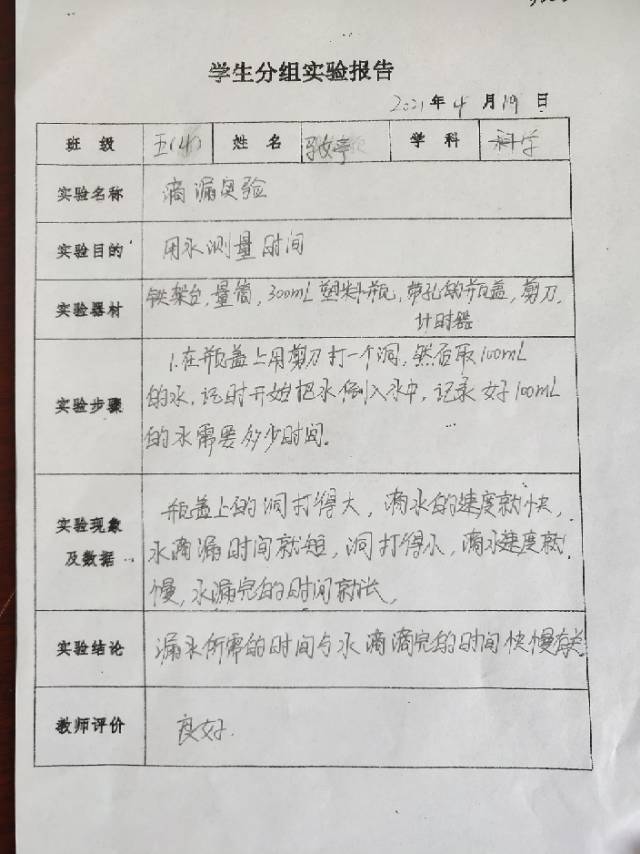 学生分组实验报告
2021年4月19日
班级 五(4) 姓名 学科 科学
实验名称 滴漏实验
实验目的 用水测量时间
实验器材 铁架台,量筒,300mL塑料瓶,带孔的瓶盖,剪刀,
计时器
实验步骤 1.在瓶盖上用剪刀打一个洞,然后取100mL
的水,记时开始把水倒入水中,记录好100mL
的水需要多少时间.
实验现象及数据 瓶盖上的洞打得大,滴水的速度就快,
水滴漏时间就短,洞打得小,滴水速度就
慢,水漏完的时间就长,
实验结论 漏水所需的时间与水滴滴完的时间快慢有关
教师评价 良好.